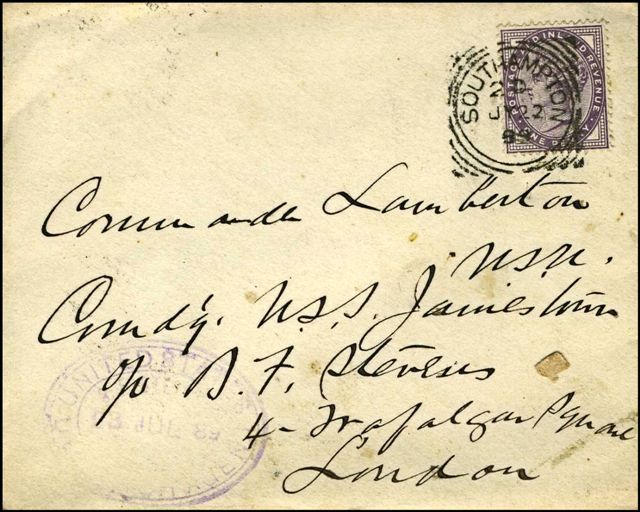 POSTAGE AND INLAND REVENUE
ONE PENNY
SOUTHAMPTON
Commander Lamberton
U.S.N.
Comd'g. U.S.S. Jamestown
c/o B. F. Stevens
4 - Trafalgar Square
London
UNITED STATES